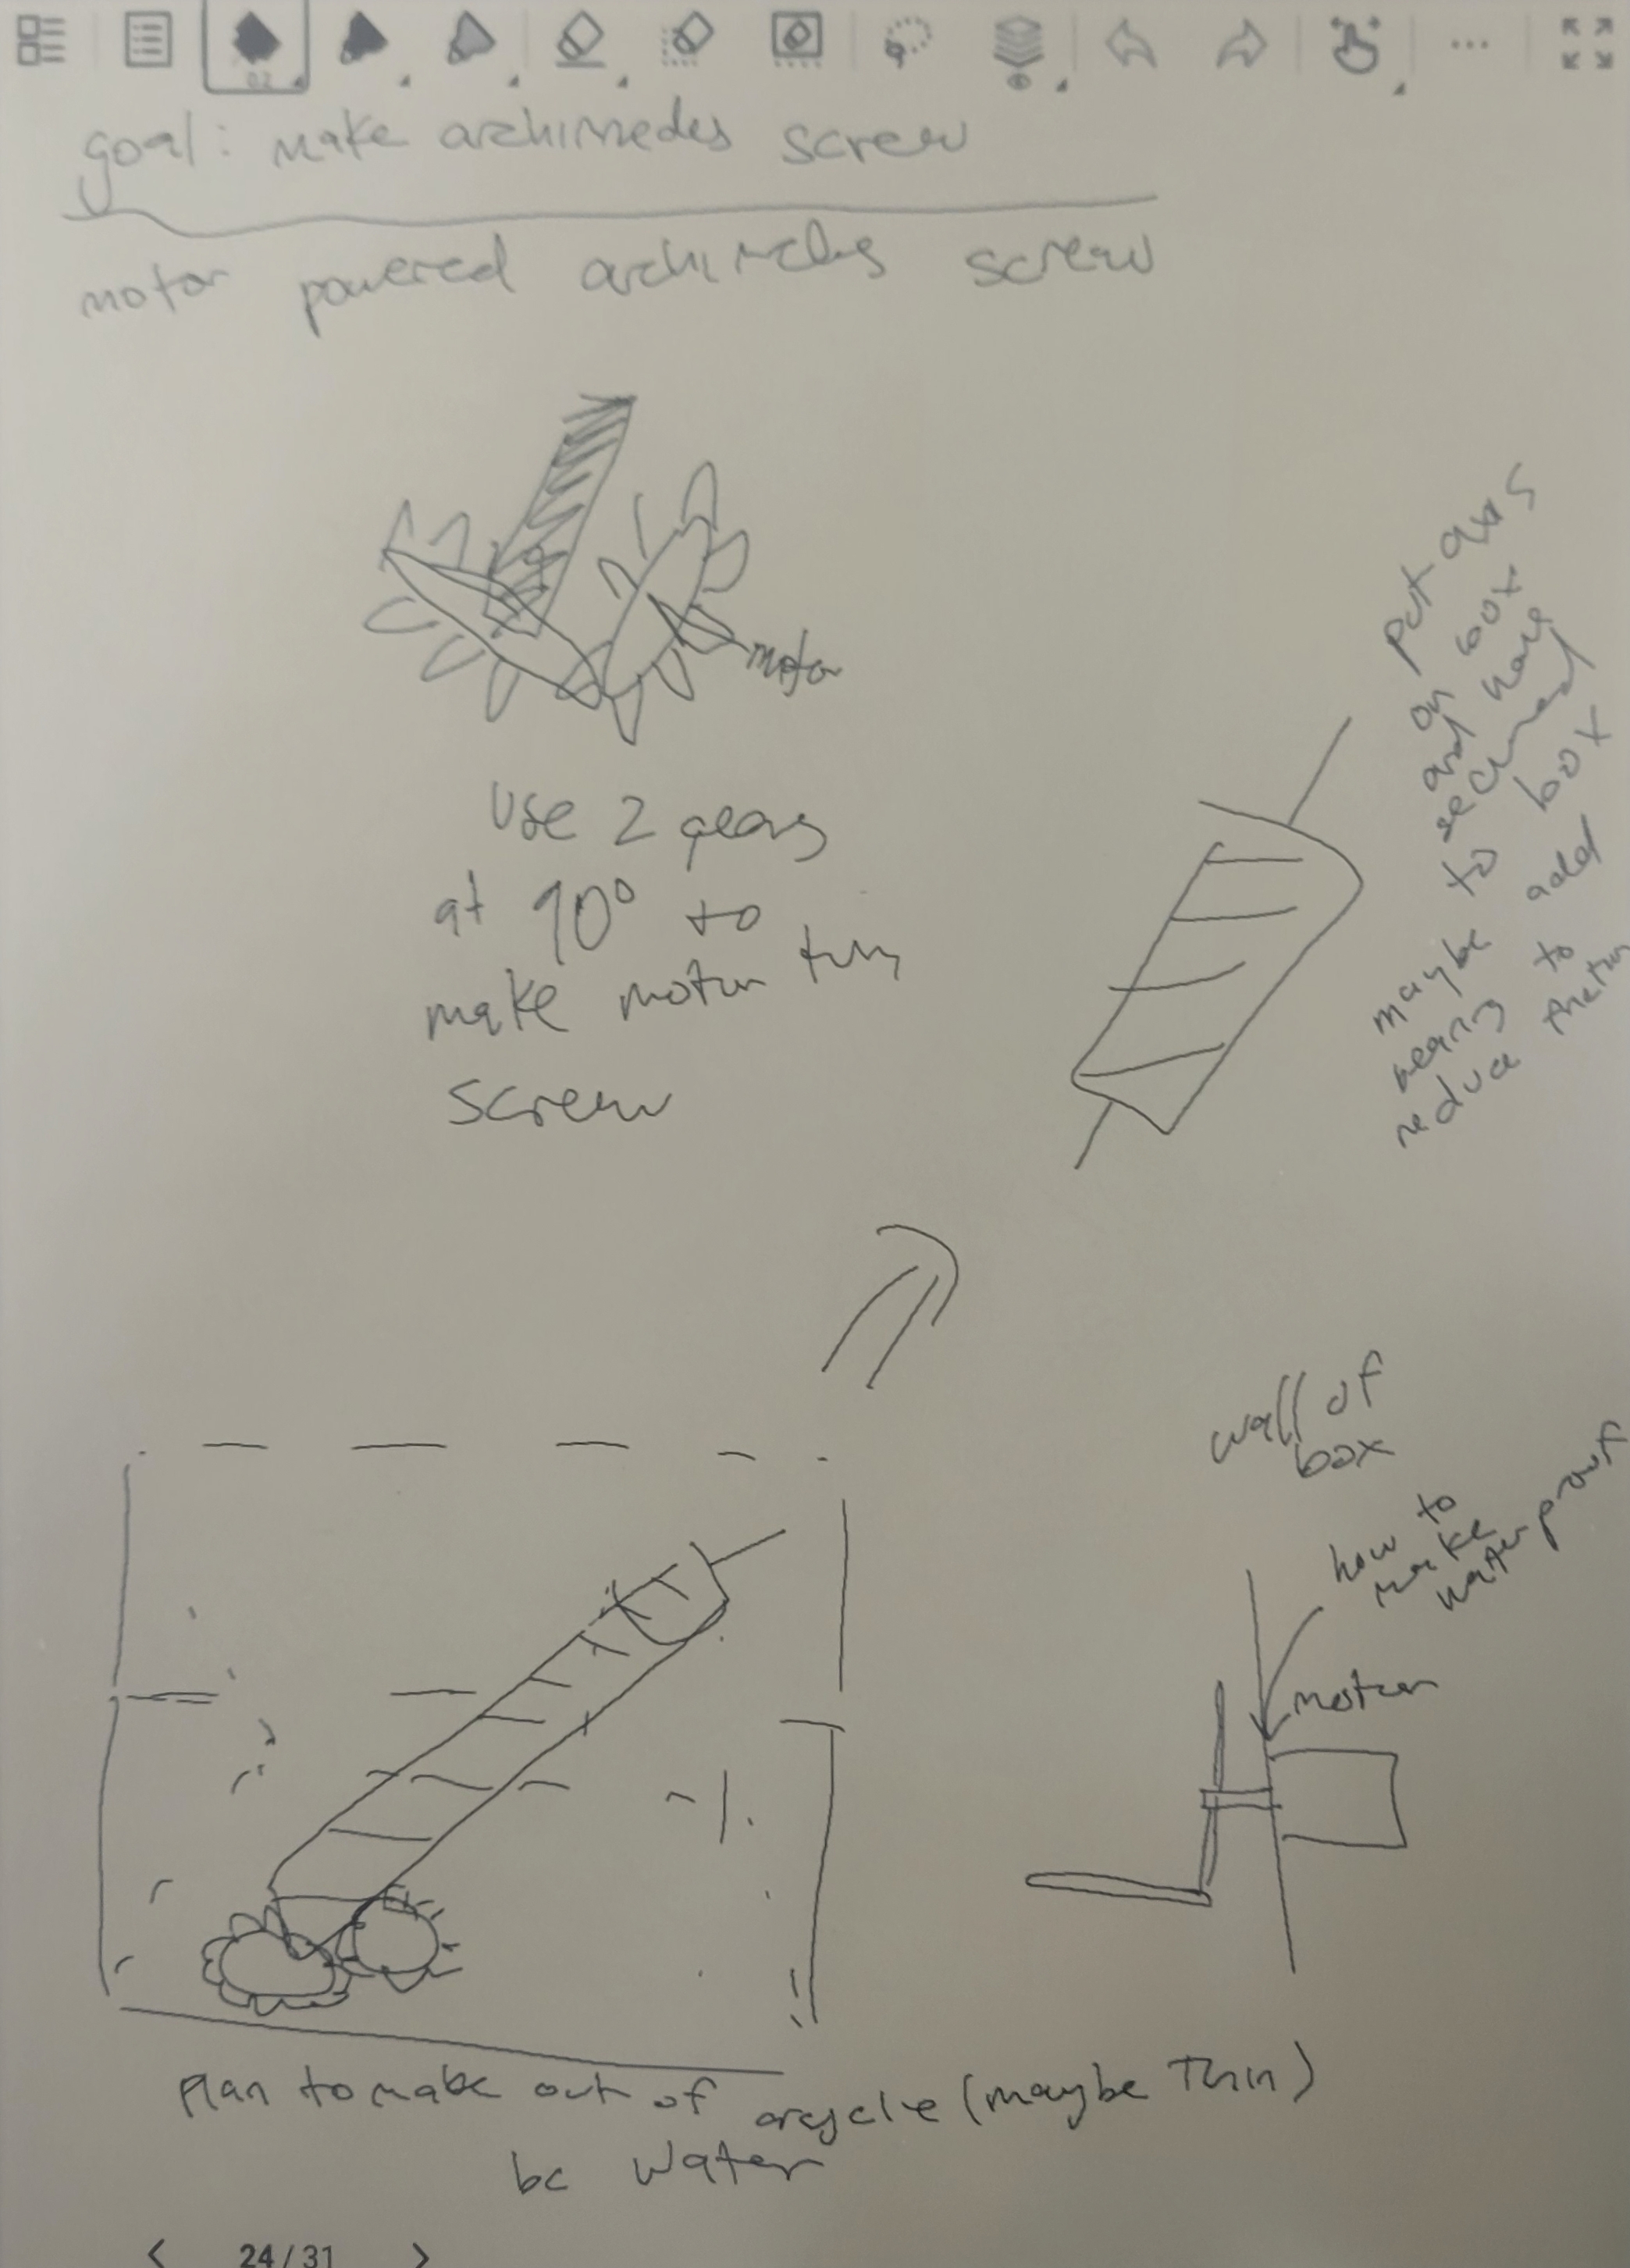 02
goal: make archimedes screw
motor powered archimedes screw
motor
use 2 gears
at 90° to
make motor turn
screw
put axis
on box
and have
secured
to box
maybe add
bearing to
reduce friction
wall of
box
how to
make
water proof
motor
Plan to make out of (maybe Thin)
bc water
24 / 31